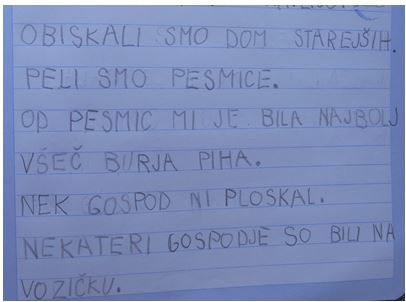 OBISKALI SMO DOM STAREJŠIH.
PELI SMO PESMICE.
OD PESMIC MI JE BILA NAJBOLJ
VŠEČ BURJA PIHA.
NEK GOSPOD NI PLOSKAL.
NEKATERI GOSPODJE SO BILI NA
VOZIČKU.